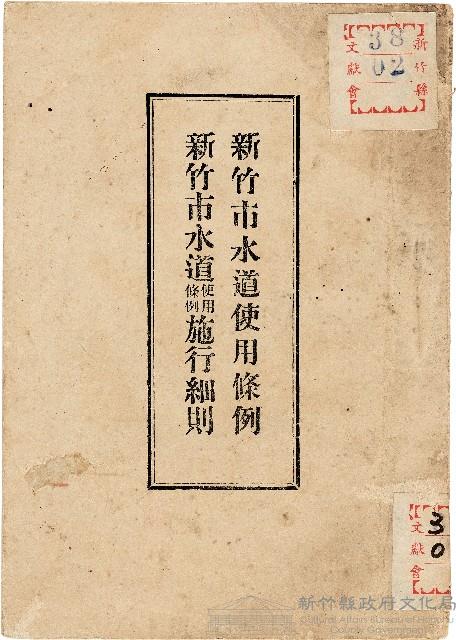 新竹市水道使用條例
新竹市水道使用條例施行細則
新竹縣
文獻會
38
02
文獻會
30
新竹縣政府文化局
Cultural Affairs Bureau of Hsinchu
County Government